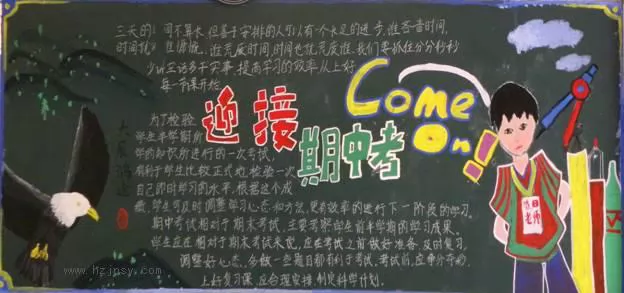 三天的时间不算长,但善于安排的人可以有一个长足的进步,谁吝啬时间,
时间就
谁荒废时间,时间也就荒废谁.我们要抓住分分秒秒
少讲空话多干实事,提高学习的效率,从上好
每一节课开始.
迎接
期中考
Come
On!
为了检验
学生半学期所
学的知识所进行的一次考试,
有利于学生比较正式地检验一次
自己即时学习的水平,根据这个成
绩,学生可及时调整学习心态和方法,更有效率的进行下一阶段的学习。
期中考试相对于期末考试,主要考察学生前半学期的学习成果。
学生应在相对于期末考试来说,应在考试之前做好准备,及时复习,
调整好心态。多做一些题目都有利于考试,考试前,应争分夺秒,
上好复习课,应合理安排,制定科学计划。
老师
www.hzjnsy.com